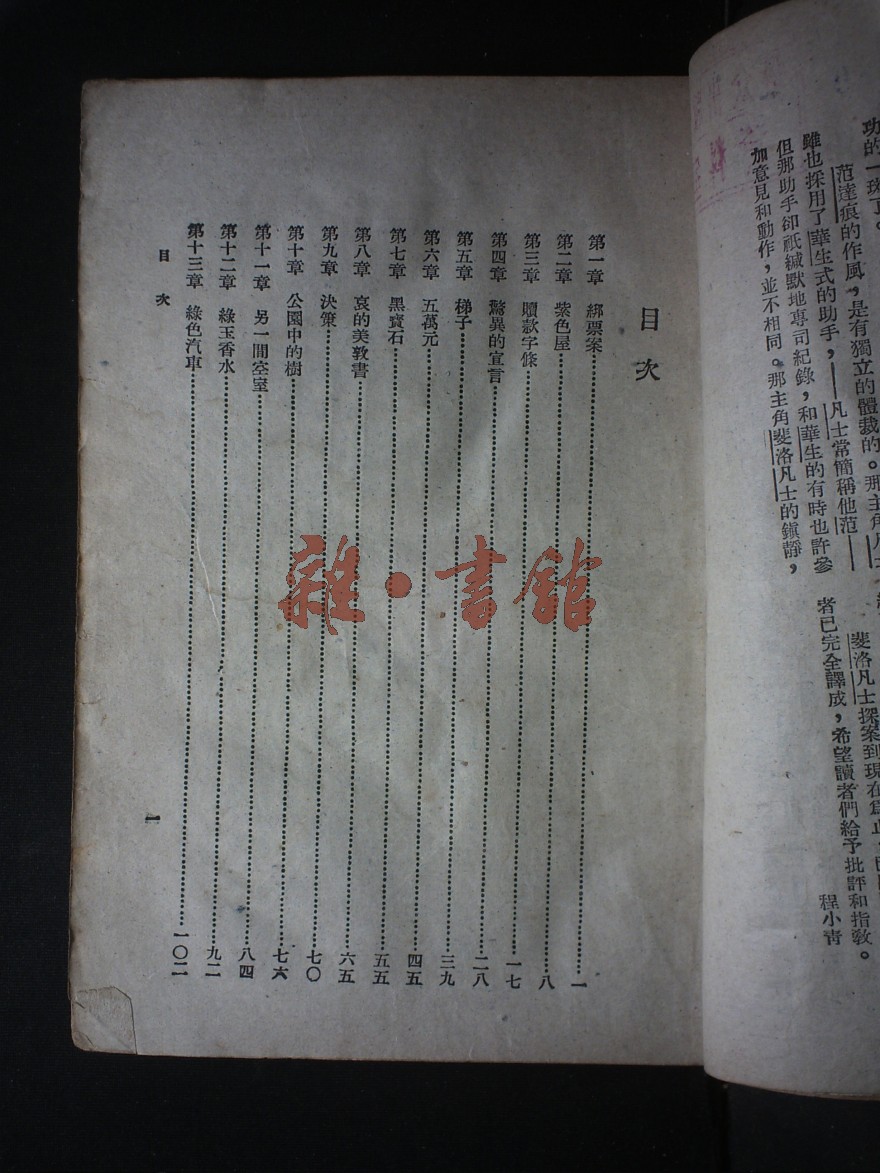 功的一斑了。
范達痕的作風，是有獨立的體裁的。那主角凡士
雖也採用了華生式的助手，——凡士常簡稱他范——
但那助手卻祇緘默地專司紀錄，和華生的有時也許參
加意見和動作，並不相同。那主角斐洛凡士的鎮靜，
斐洛凡士探案到現在爲止，
者已完全譯成，希望讀者們給予批評和指敎。
程小青
目次
第一章 綁票案 一
第二章 紫色屋 八
第三章 贖款字條 一七
第四章 驚異的宣言 二八
第五章 梯子 三九
第六章 五萬元 四五
第七章 黑寶石 五五
第八章 哀的美敦書 六五
第九章 決策 七〇
第十章 公園中的樹 七六
第十一章 另一間空室 八四
第十二章 綠玉香水 九二
第十三章 綠色汽車 一〇二
目次
一
雜·書館